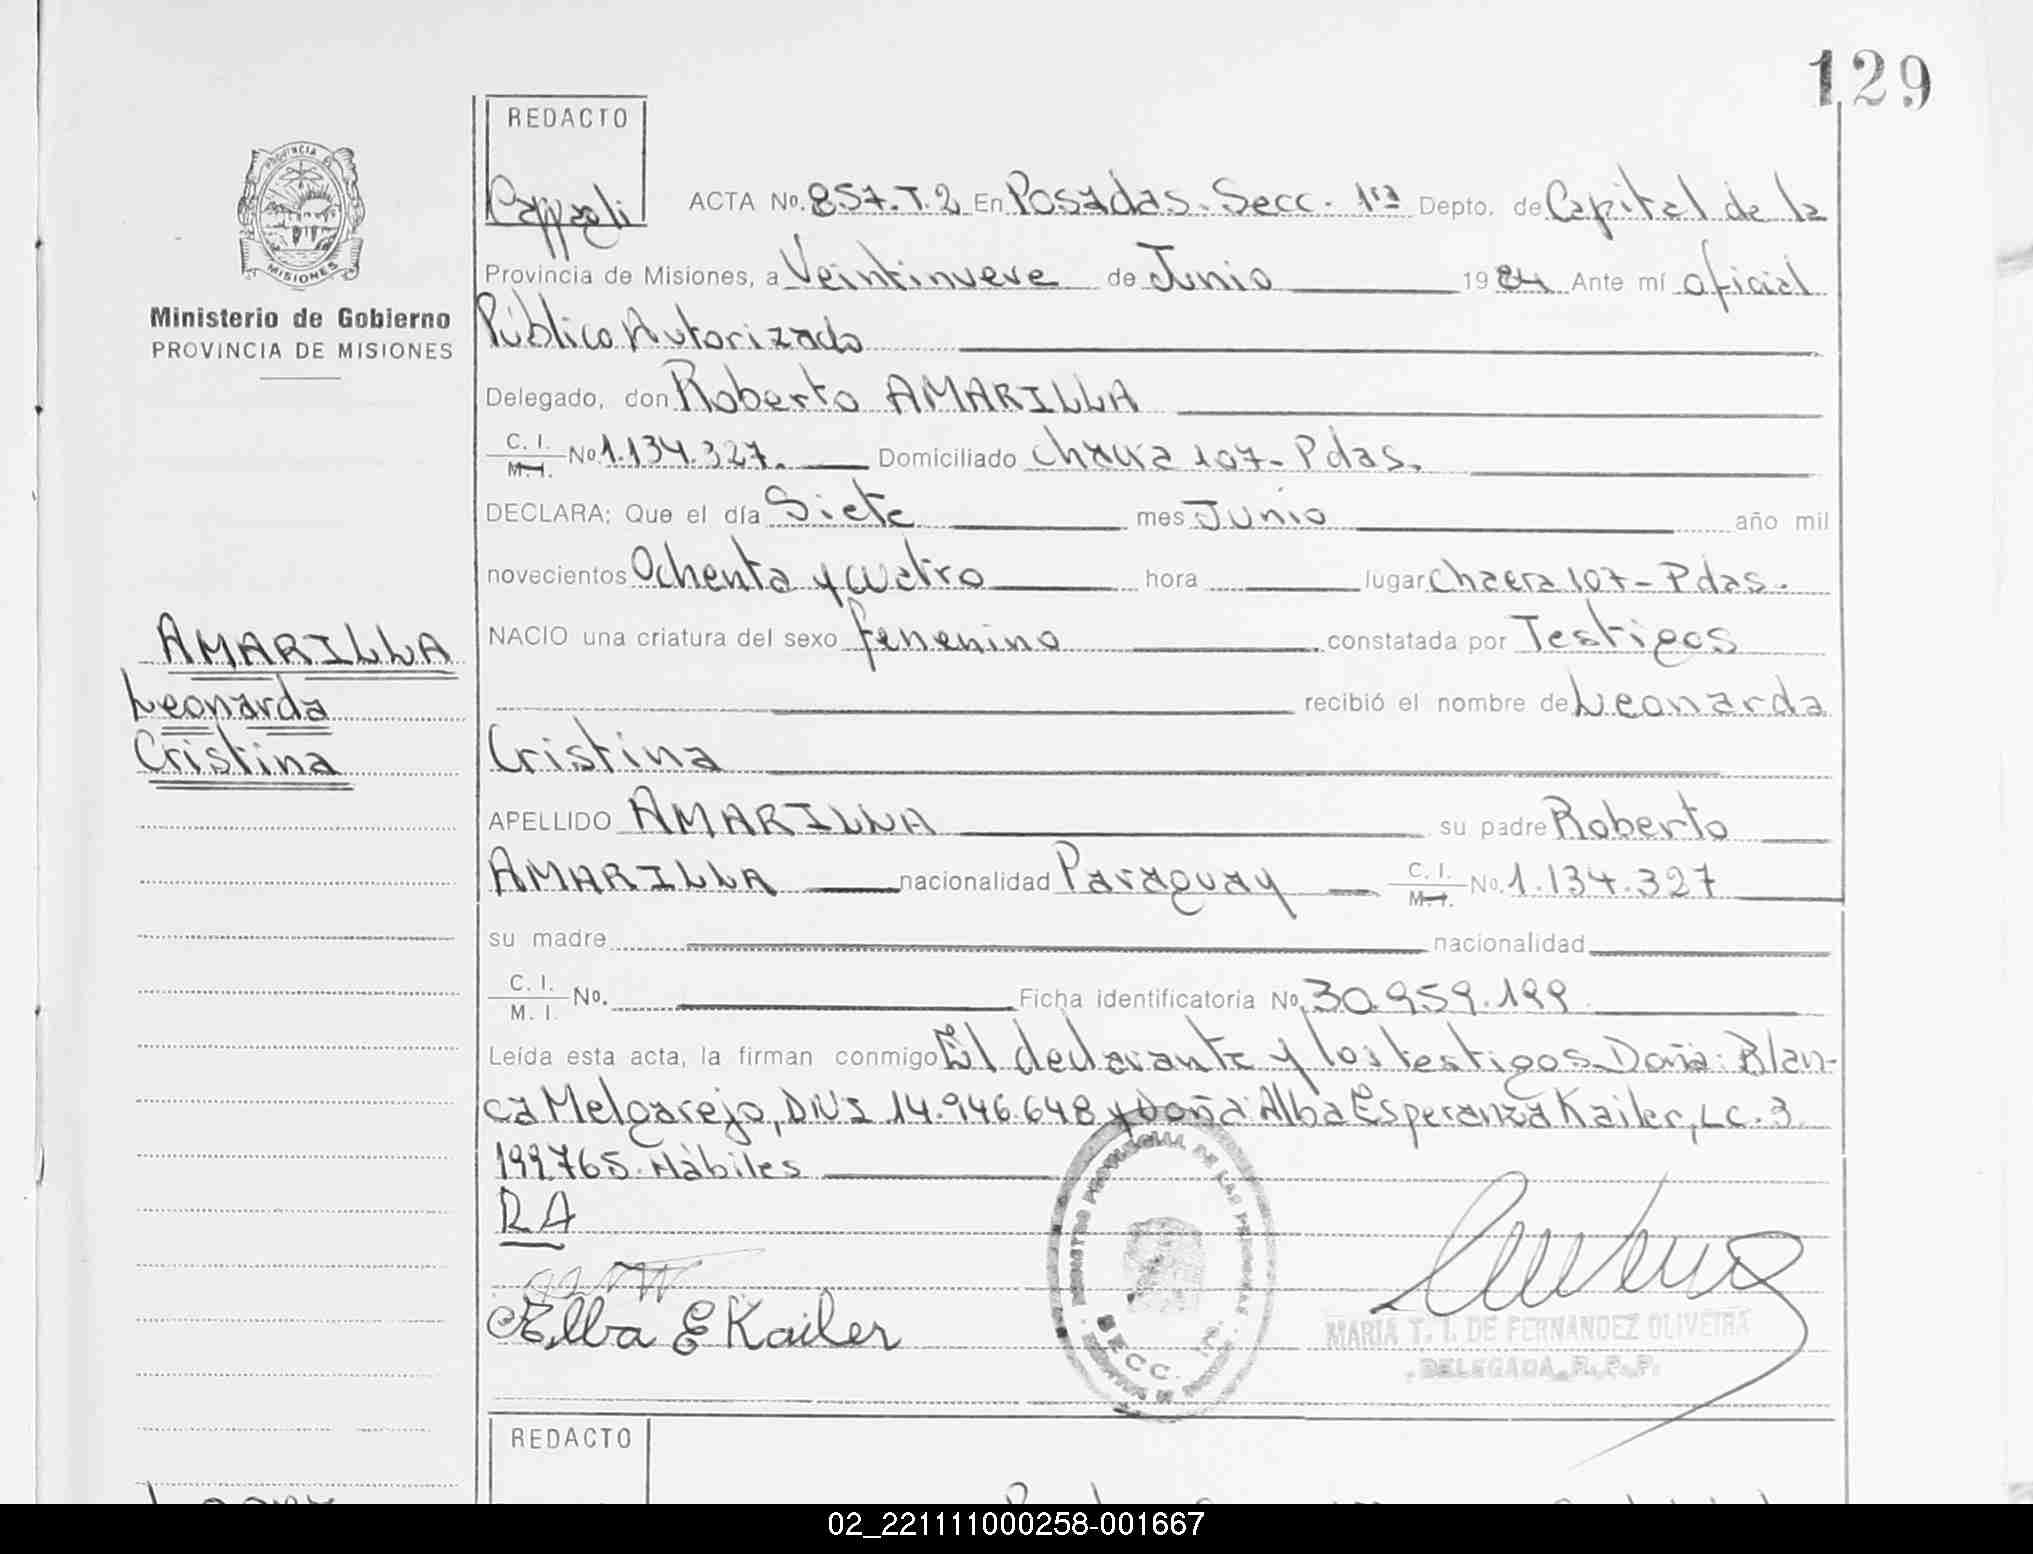 129
REDACTO
Cappali
ACTA No. 857.T.2 En Posadas. Secc. 1ra Depto. de Capital de la
PROVINCIA DE MISIONES
Provincia de Misiones, a Veintinueve de Junio 1984 Ante mí oficial
Ministerio de Gobierno
PROVINCIA DE MISIONES
Público Autorizado
Delegado, don Roberto AMARILLA
C. I. M. I. No 1.134.327. Domiciliado chacra 107- Pdas.
DECLARA: Que el día Siete mes Junio año mil
novecientos Ochenta y cuatro hora lugar Chacra 107- Pdas.
NACIO una criatura del sexo femenino constatada por Testigos
AMARILLA
recibió el nombre de Leonarda
Leonarda
Cristina
Cristina
APELLIDO AMARILLA su padre Roberto
AMARILLA nacionalidad Paraguay C. I. M. I. No. 1.134.327
su madre nacionalidad
C. I. M. I. No. Ficha identificatoria No. 30.959.199
Leída esta acta, la firman conmigo El declarante y los testigos Doña: Blan-
ca Melgarejo, DNI 14.946.648 y Doña Alba Esperanza Kailer, LC. 3.
199.765. Hábiles
RA
Elba E Kailer
REGISTRO PROVINCIAL DE LAS PERSONAS
SECC. 1ra.
MARIA T. I. DE FERNANDEZ OLIVEIRA
DELEGADA R. P. P.
REDACTO
02_221111000258-001667